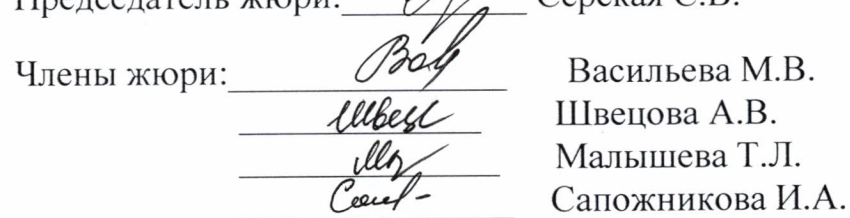 Председатель жюри: Серская С.В.
Члены жюри: Васильева М.В.
Швецова А.В.
Малышева Т.Л.
Сапожникова И.А.